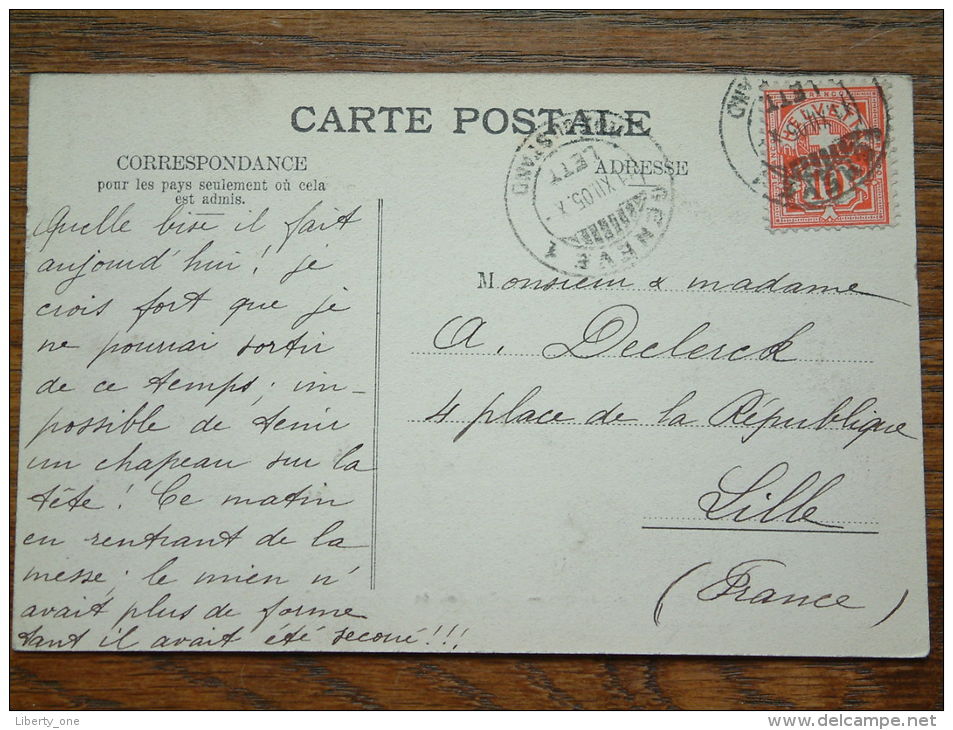 CARTE POSTALE
CORRESPONDANCE
pour les pays seulement où cela
est admis.
ADRESSE
Quelle bise il fait
aujourd'hui! je
crois fort que je
ne pourrai sortir
de ce temps; im-
possible de tenir
un chapeau sur la
tête! Ce matin
en rentrant de la
messe; le mien n'
avait plus de forme
tant il avait été secoué!!!
GENEVE 1
LETT
XII.05. X
10
Monsieur & madame
A. Declerck
4 place de la République
Lille
(France)
Liberty_one
http://www.delcampe.net